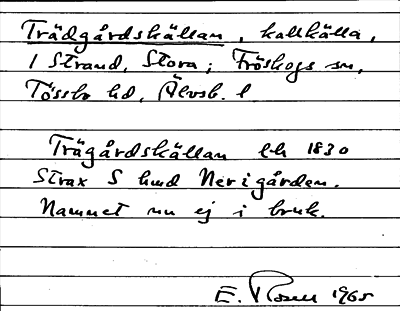 Trädgårdskällan, kallkälla,
1 Strand, Stora; Fröskogs sn,
Tössbo hd, Älvsb. l
Trägårdskällan lh 1830
Strax S hmd Nerigården.
Namnet nu ej i bruk.
E. Rosen 1965